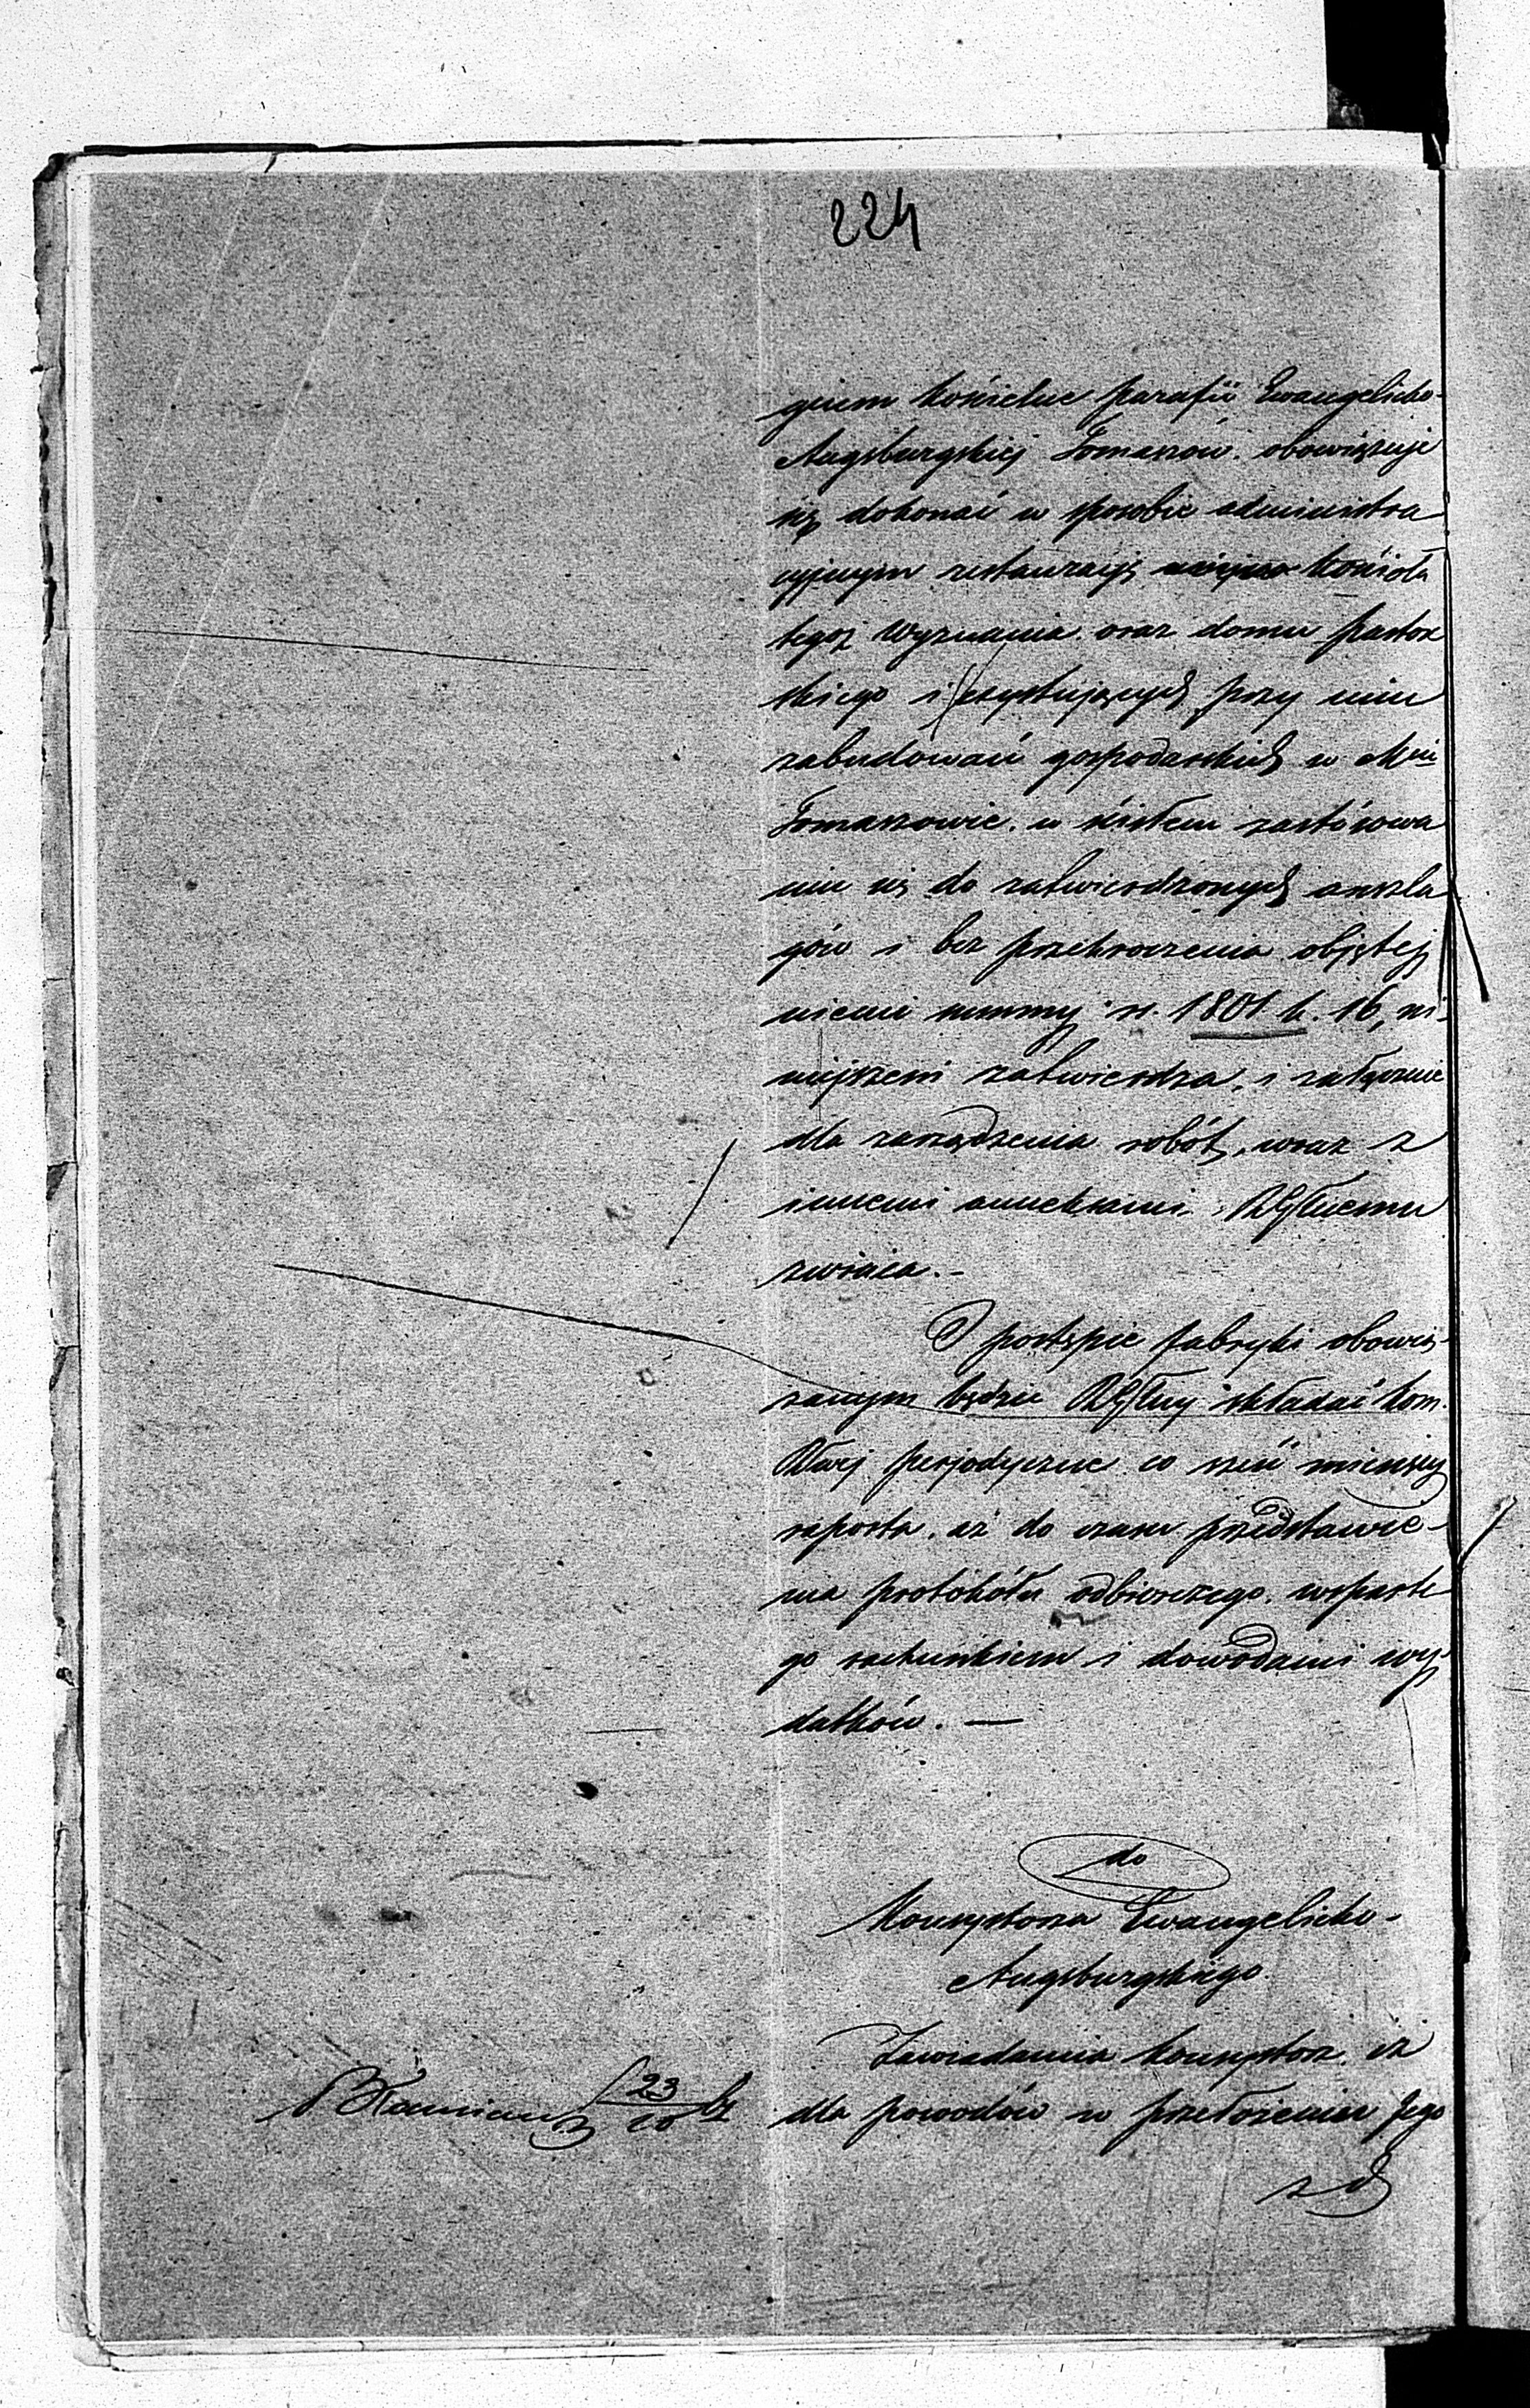 224
gium kościelne parafii Ewangelicko-
Augsburgskiej Tomaszów. obowiązuje
się dokonać w sposobie administra
cyjnym restauracyę kościoła
tegoż Wyznania oraz domu pastor
skiego i exystujących przy nim
zabudowań gospodarskich w Mcie
Tomaszowie. w ścisłem zastósowa
niu się do zatwierdzonych anszla
gów i bez przekroczenia objętej
niemi summy rs. 1801 k. 16, ni-
niejszem zatwierdza, i załącznie
dla zarządzenia robót, wraz z
innemi annexami, RGłnemu
zwraca.-
O postępie fabryki obowią-
zanym będzie RGłny składać Kom.
RWej perjodycznie co sześć miesięcy
raporta, aż do czasu przedstawie-
nia protokółu odbiorczego, wsparte
go rachunkiem i dowodami wy-
datków. —
do
Konsystorza Ewangelicko-
Augsburgskiego
Zawiadamia Konsystorz, iż
23
10
dla powodów w przełożeniu Jego
z d